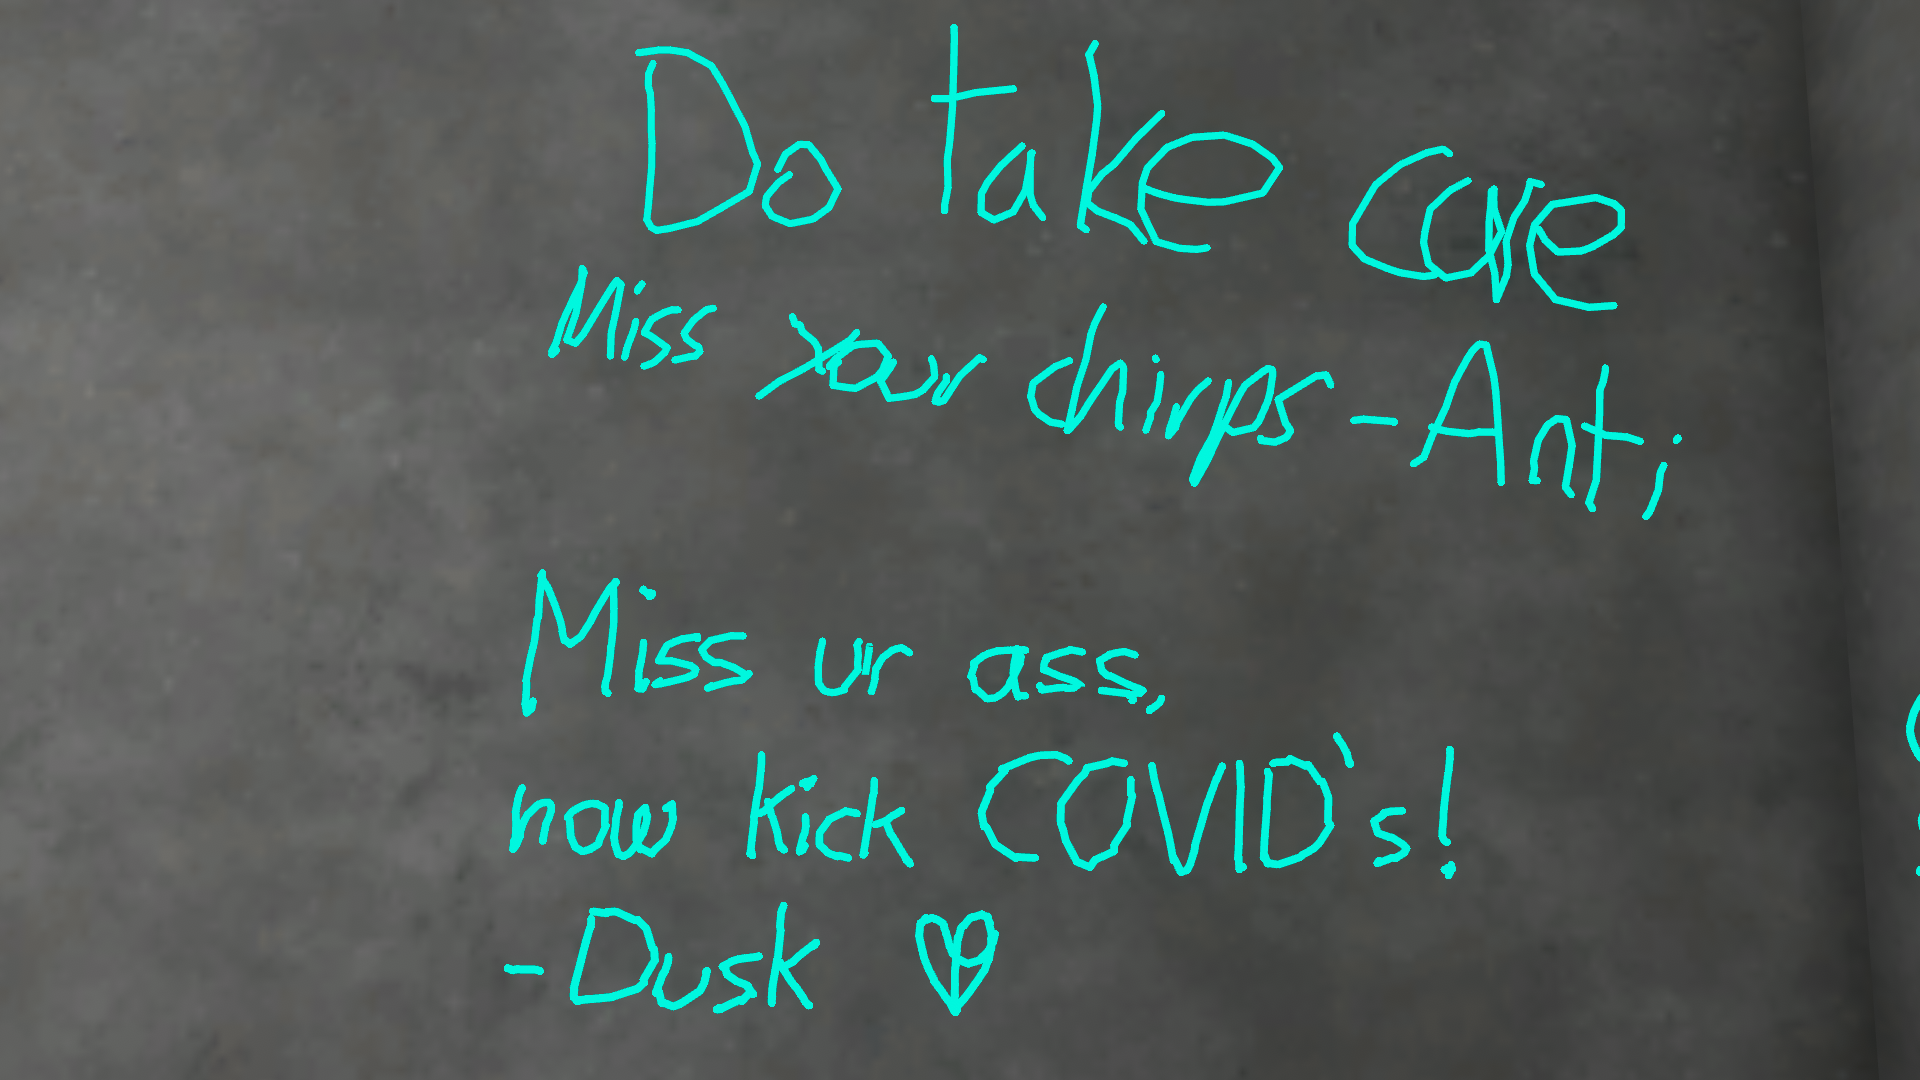 Do take care
Miss your chirps - Anti
Miss ur ass,
now kick COVID's!
- Dusk ♡